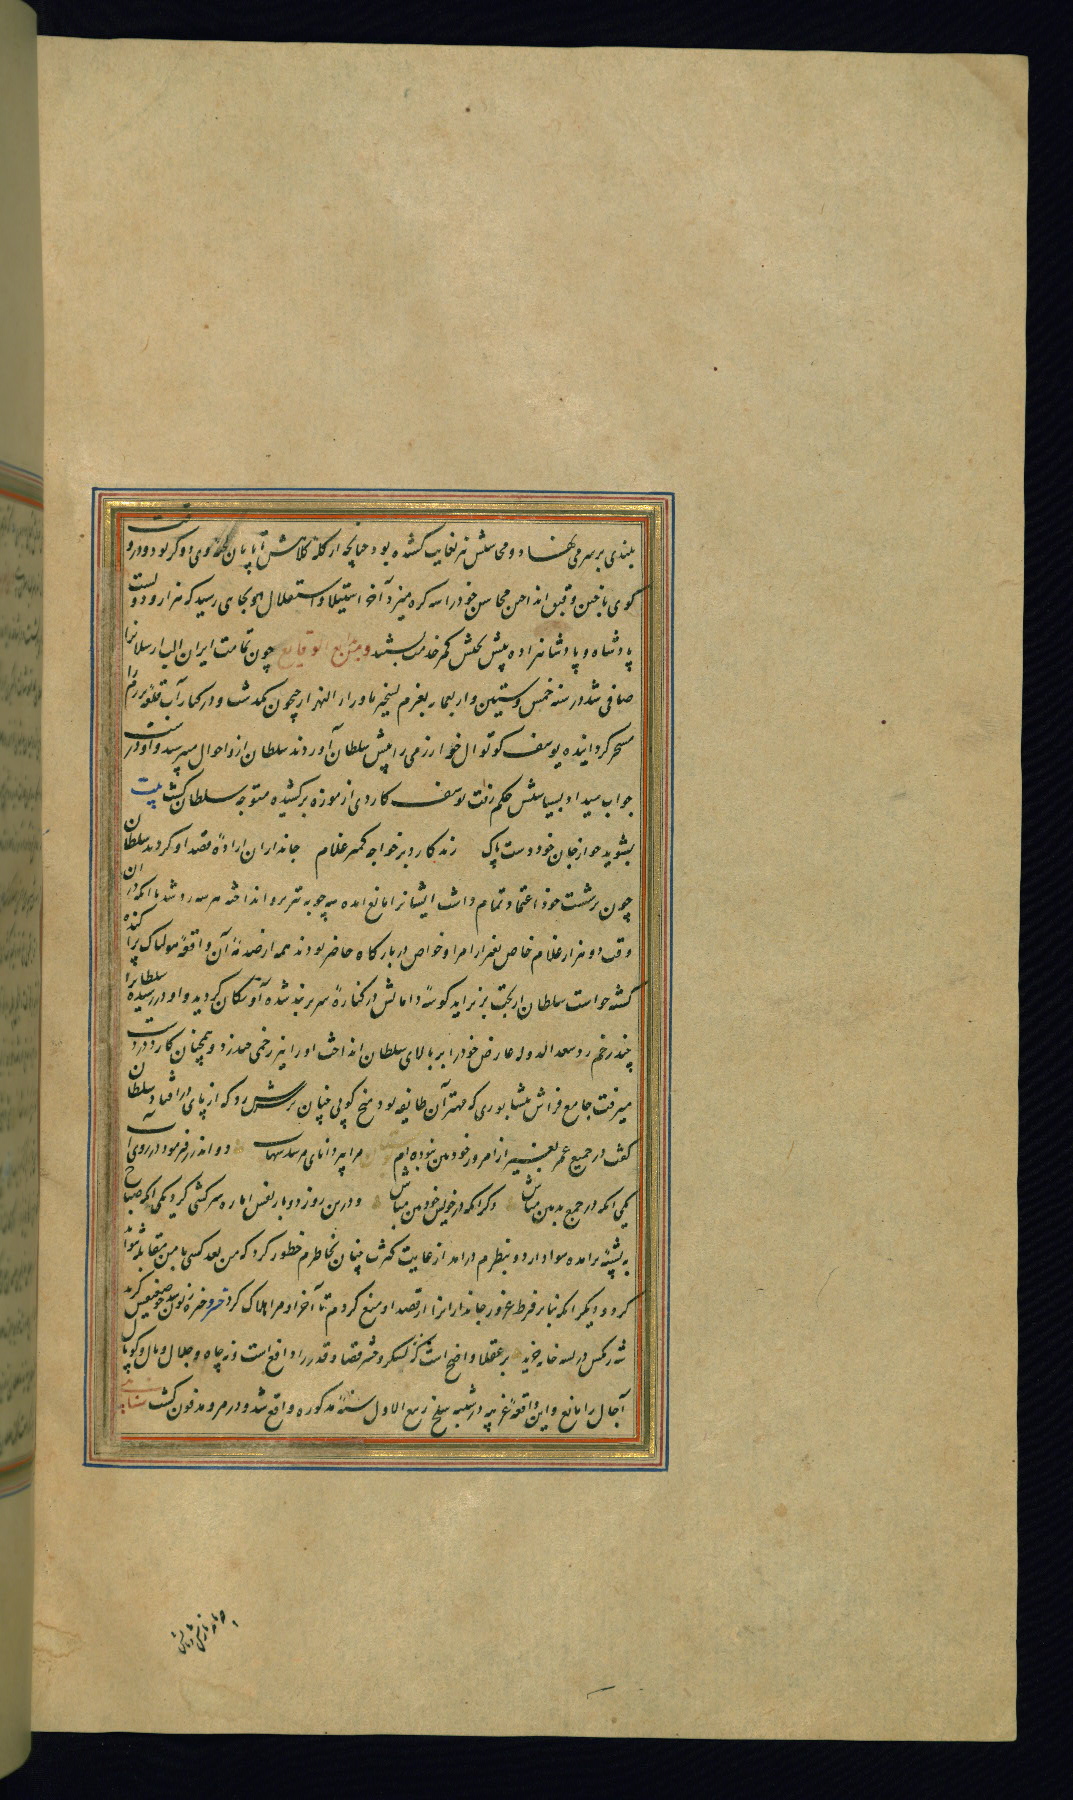 بلندی بر سر می نهاد و محاسنش نیز بغایت کشیده بود چنانچه از کله کلاهش تا پایان لحیه وی دو گز بود و در وقت
کوی باختن و قبق انداختن محاسن خود را سه گره میزد آخر استیلا و استقلال او بجای رسید که هزار و دویست
پادشاه و پادشاهزاده پیش تختش کمر خدمت بستند و من بدایع الوقایع چون تمامت ایران الب ارسلانرا
صافی شد در سنه خمس و ستین و اربعمایه بعزم تسخیر ماوراء النهر از جیحون بگذشت و در کنار آب قلعه برزم را
مسخر گردانیده یوسف کوتوال خوارزمی را پیش سلطان آوردند سلطان ازو احوال میپرسید و او درشت
جواب میداد بسیاستش حکم رفت یوسف کاردی از موزه برکشیده متوجه سلطان گشت بیت
بشوید چو از جان خود دست پاک زند کارد بر خواجه کمتر غلام جانداران اراده قصد او کردند سلطان
چون بر شست خود اعتماد تمام داشت ایشانرا مانع آمده سه چوبه تیر برو انداخته هر سه رد شد با آنکه در آن
وقت دو هزار غلام خاص بغیر از امرا و خواص در بارگاه حاضر بودند همه از صدمه آن واقعه هولناک پراکنده
گشته خواست سلطان از تخت بزیر آید گوشه دامانش در کناره سریر بند شده آویزکان گردید و او در رسیده سلطانرا
چند زخم زد سعد الدوله عارض خود را بر بالای سلطان انداخت او را نیز زخمی چند زد و همچنان کارد در دست
میرفت جامع فراش نیشابوری که مهتر آن طایفه بود میخ کوبی چنان بر سرش زد که از پای در افتاد سلطان
گفت در جمیع عمر بغیر از امروز خودبین نبوده ام مرا پیر دانای مرشد شهاب دو اندرز فرمود بر روی آب
یکی آنکه در جمع بدبین مباش دگر آنکه در خویش خودبین مباش و درین روز دو بار نفس اماره سرکشی کرد یکی آنکه صباح
به پشته برآمده سواد اردو بنظرم درآمد از غایت کثرت چنان بخاطرم خطور کرد که من بعد کسی با من مقابله نتواند
کرد و دیگر آنکه بنابر فرط غرور جاندارانرا از قصد او منع کردم تا آخر او مرا هلاک کرد
بر عقلا واضح است که نه لشکر و حشر قضا و قدر را دافع است و نه جاه و جلال و مال و کوپال
آجال را مانع و این واقعه غریبه در شنبه سلخ ربیع الاول سنه مذکوره واقع شد و در مرو مدفون گشت